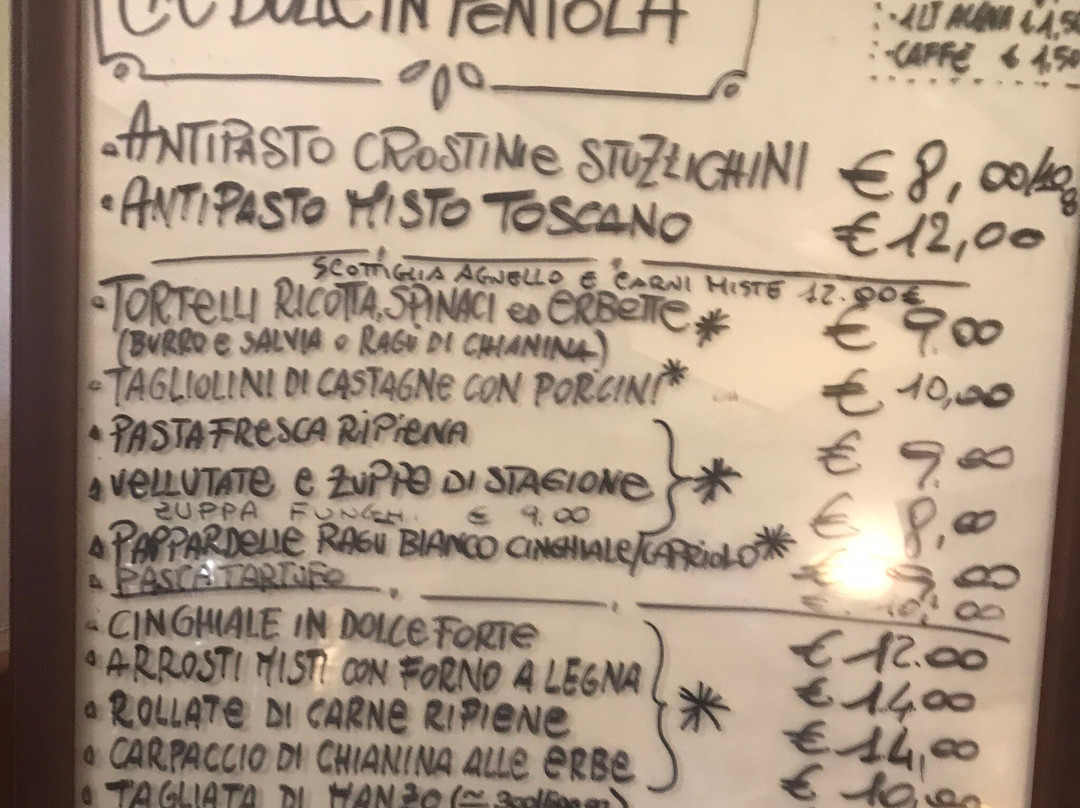 DOLCE IN PENTOLA
-ALT ACQUA € 1,50
-CAFFÈ € 1,50
ANTIPASTO CROSTINI e STUZZICHINI € 8,00/10
ANTIPASTO MISTO TOSCANO € 12,00
SCOTTIGLIA AGNELLO E CARNI MISTE 12.00€
TORTELLI RICOTTA, SPINACI ED ERBETTE * € 9.00
(BURRO e SALVIA o RAGÙ DI CHIANINA)
TAGLIOLINI DI CASTAGNE CON PORCINI * € 10,00
PASTA FRESCA RIPIENA € 9.00
VELLUTATE e ZUPPE DI STAGIONE * € 8,00
ZUPPA FUNGHI. € 9.00
PAPPARDELLE RAGÙ BIANCO CINGHIALE/CAPRIOLO * € 9,00
TARTUFO € 10,00
CINGHIALE IN DOLCE FORTE € 12.00
ARROSTI MISTI CON FORNO A LEGNA € 14.00
ROLLATE DI CARNE RIPIENE * € 14,00
CARPACCIO DI CHIANINA ALLE ERBE € 10,00
TAGLIATA DI MANZO